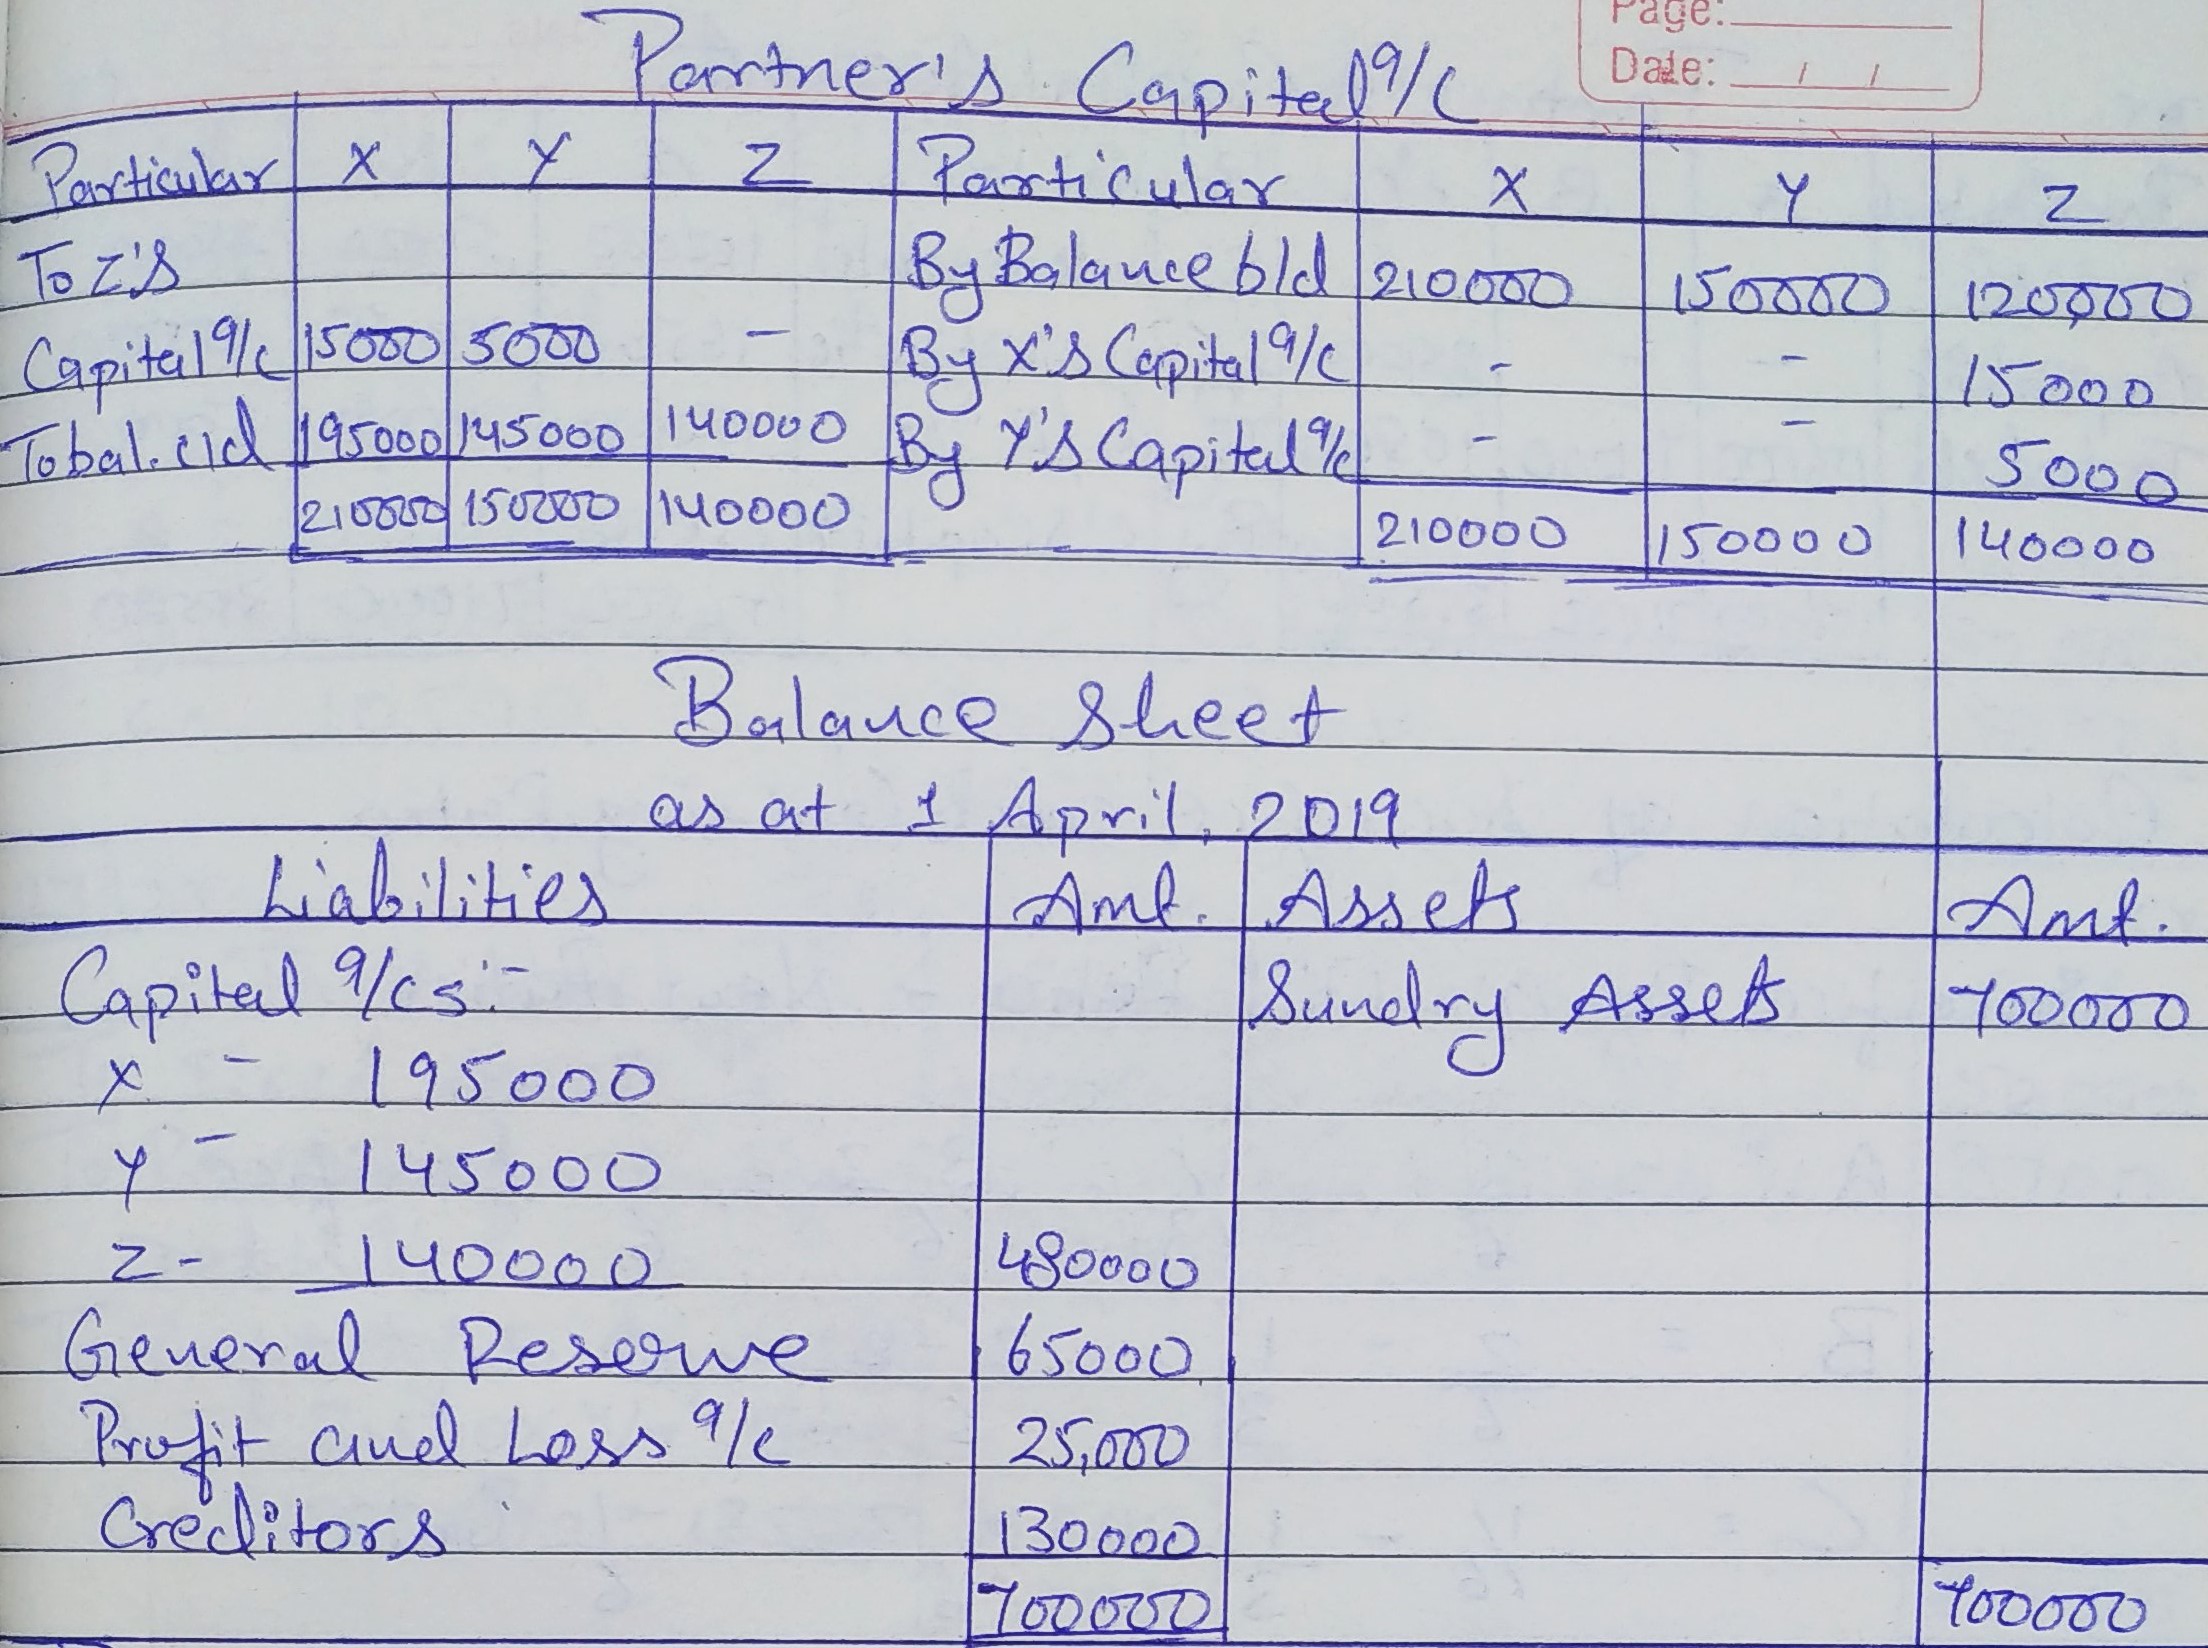 Page:
Date: / /
Partner's Capital a/c
Particular X Y Z Particular X Y Z
To Z's By Balance b/d 210000 150000 120000
Capital a/c 15000 5000 - By X's Capital a/c - - 15000
To bal. c/d 195000 145000 140000 By Y's Capital a/c - - 5000
210000 150000 140000 210000 150000 140000
Balance Sheet
as at 1 April, 2019
Liabilities Amt. Assets Amt.
Capital a/cs:- Sundry Assets 700000
X - 195000
Y - 145000
Z - 140000 480000
General Reserve 65000
Profit and Loss a/c 25,000
Creditors 130000
700000 700000